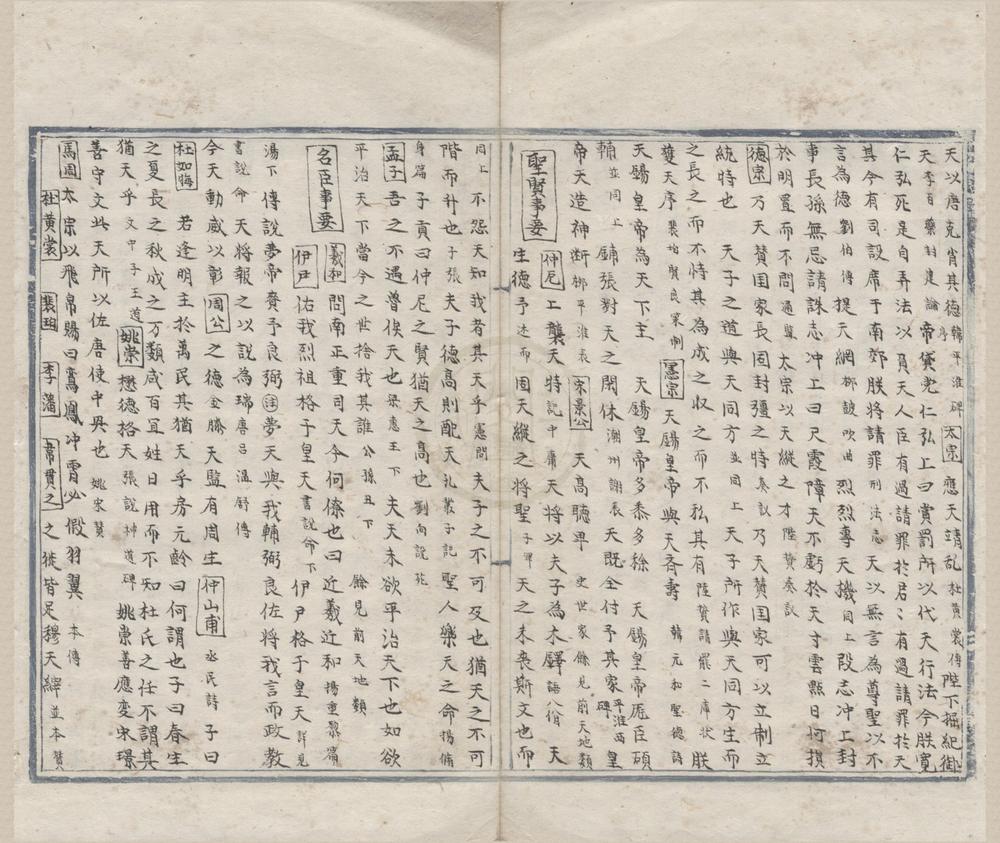 天以唐克肖其德韓平淮碑序太宗應天靖乱杜黄裳傳陛下握紀御
天李百藥封建論帝黛老仁弘上曰賞罰所以代天行法今朕寬
仁弘死是自弄法以負天人臣有過請罪於君〻有過請罪於天
其今有司設席于南郊朕將請罪刑法志天以無言為尊聖以不
言為德劉伯傳提天網柳鼓吹曲烈烈專天機同上段志冲上封
事長孫無忌請誅志冲上曰尺霞障天不虧於天寸雲點日何損
於明置而不問通鑑太宗以天縱之才陸贄奏議
德宗乃天賛国家長固封彊之特奏議乃天賛国家可以立制立
統特也天子之道與天同方並同上天子所作與天同方生而
之長之而不恃其為成之収之而不私其有陸贄請罷二庫状朕
獲天序裴垍賢良策制憲宗天錫皇帝與天斉壽韓元和聖德詩
天錫皇帝為天下主天錫皇帝多黍多稌天錫皇帝厖臣碩
輔並同上鋪張對天之閎休潮州謝表天既全付予其家平淮西碑皇
帝天造神断柳平淮表宋景公天高聽卑史世家餘見前天地類
聖賢事要仲尼上襲天特記中庸天將以夫子為木鐸語八佾天
生德予述而固天縱之将聖子罕天之未喪斯文也而
同上不怨天知我者其天乎憲問夫子之不可及也猶天之不可
階而升也子張夫子德高則配天孔叢子記聖人樂天之命揚脩
身篇子貢曰仲尼之賢猶天之高也劉向說苑
孟子吾之不遇魯侯天也梁惠王下夫天未欲平治天下也如欲
平治天下當今之世捨我其誰公孫丑下餘見前天地類
名臣事要羲和問南正重司天今何僚也曰近羲近和揚重黎篇
伊尹佑我烈祖格于皇天書説命下伊尹格于皇天詳見
湯下傳說夢帝賚予良弼註夢天與我輔弼良佐将我言而政教
書說命天将報之以説為瑞唐吕温舒傳
今天動威以彰周公之德金縢天監有周生仲山甫烝民詩子曰
杜如晦若逢明主於萬民其猶天乎房元齡曰何謂也子曰春生
之夏長之秋成之万類咸百冝姓日用而不知杜氏之任不謂其
猶天乎文中子王道姚崇懋德格天張說神道碑姚崇善應变宋璟
善守文此天所以佐唐使中興也姚宋賛
馬周太宗以飛帛賜曰鸞鳳冲霄必假羽翼本傳
杜黄裳裴垍李藩韋貫之之徙皆足穆天縡並本賛